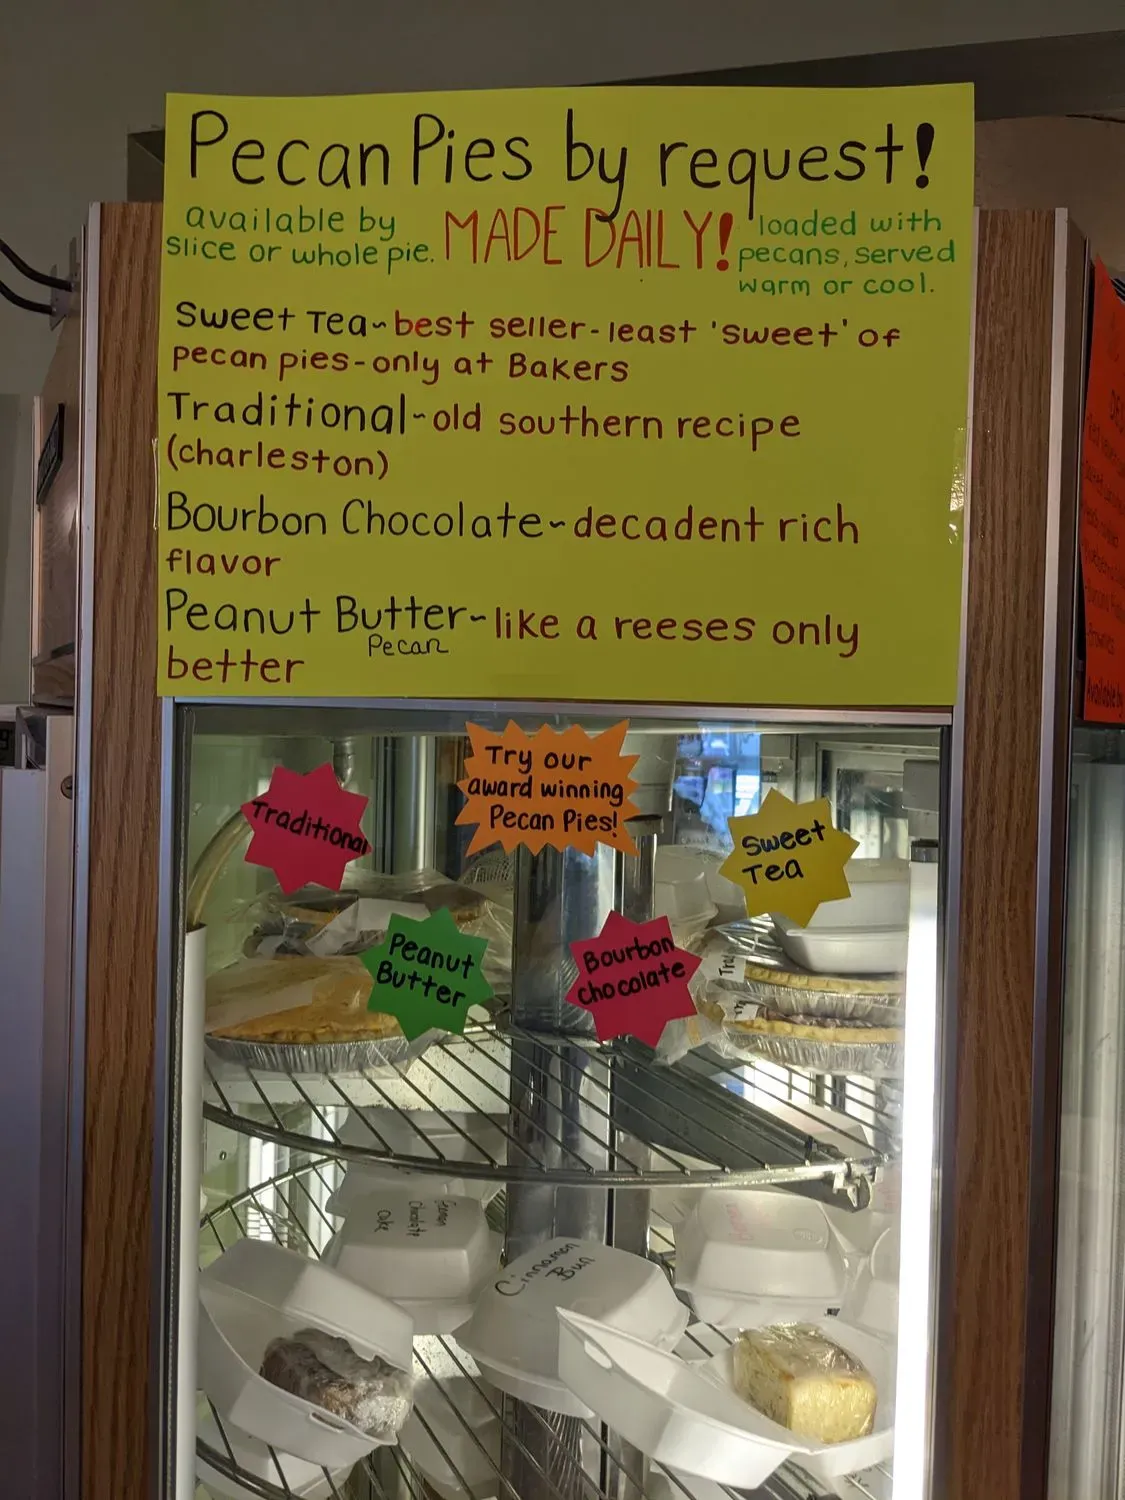 Pecan Pies by request!
available by
slice or whole pie.
MADE DAILY!
loaded with
pecans, served
warm or cool.
Sweet Tea~best seller-least 'sweet' of
pecan pies-only at Bakers
Traditional~old southern recipe
(charleston)
Bourbon Chocolate~decadent rich
flavor
Peanut Butter~like a reeses only
Pecan
better
Try our
award winning
Pecan Pies!
Traditional
Sweet
Tea
Peanut
Butter
Bourbon
chocolate
Trad
German
Chocolate
Cake
Cinnamon
Bun